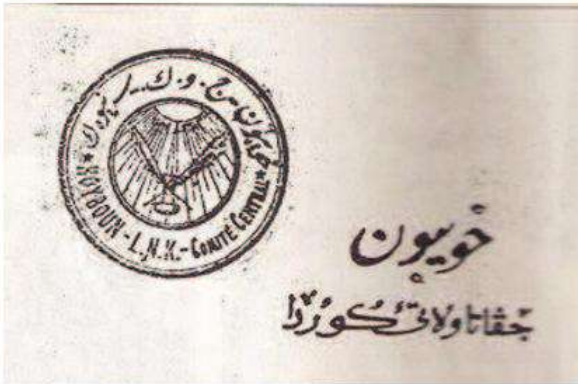 خویبون - ج . و . ك
HOYBOUN - L.N.K. - COMITÉ CENTRAL
خویبون
جڤاتا ولاتئ کوردا